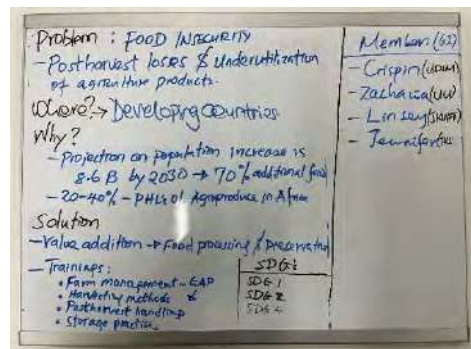 Problem : FOOD INSECURITY
- Postharvest loses & underutilization
of agriculture products.
Where? → Developing countries
Why?
- Projection on population increase is
8.6 B by 2030 → 70% additional food
- 20-40% - PHLs of Agroproduce in Africa
Solution
- Value addition → Food processing & Preservation
- Trainings:
• Farm management - GAP
• Harvesting methods
• Postharvest handling
• Storage practices
SDGs
SDG 1
SDG 2
SDG
Members (G2)
- Crispin
- Zacharia
- Linsey
- Jennifer